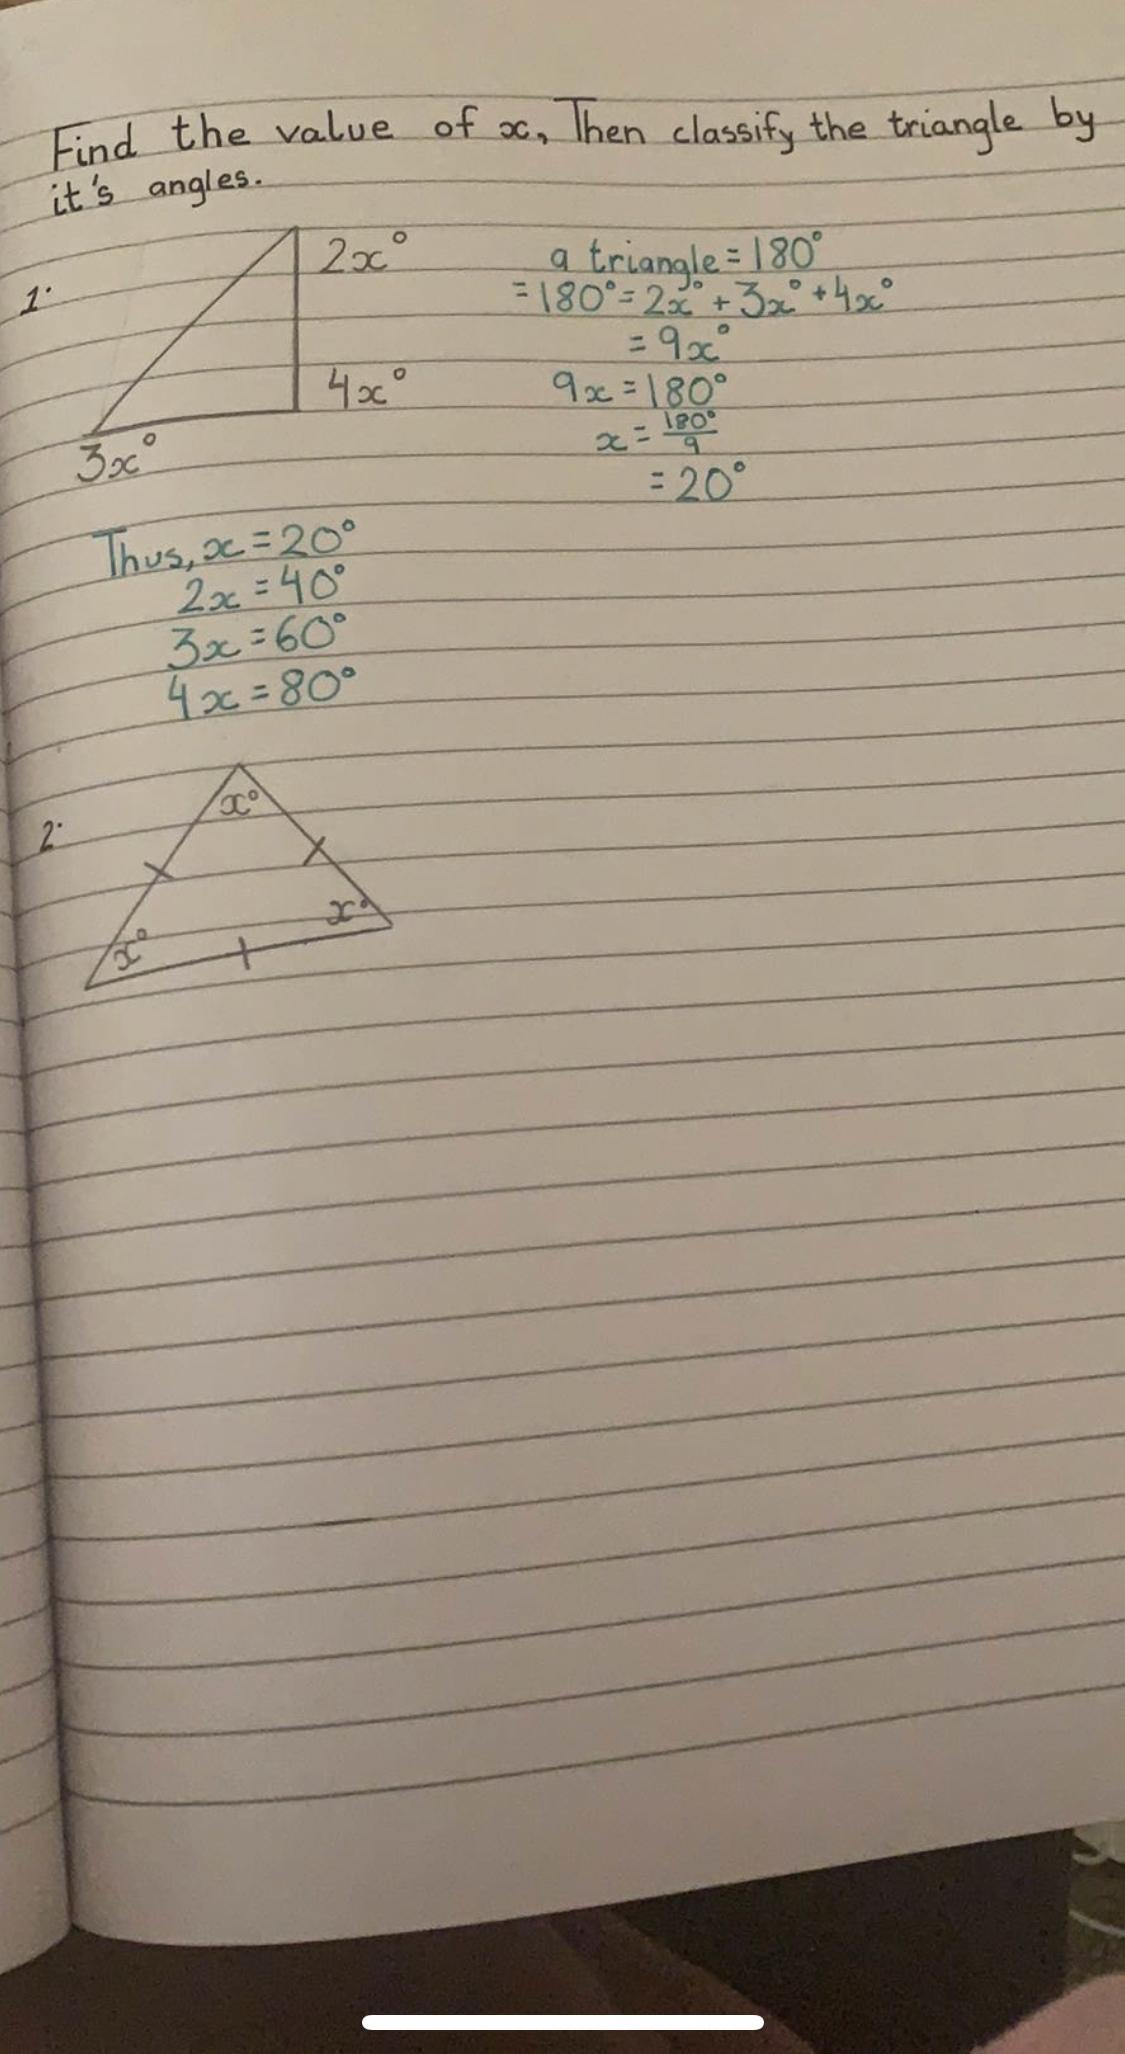 Find the value of x, Then classify the triangle by
it's angles.
1.
2x°
4x°
3x°
a triangle = 180°
= 180° = 2x° + 3x° + 4x°
= 9x°
9x = 180°
x = 180°/9
= 20°
Thus, x = 20°
2x = 40°
3x = 60°
4x = 80°
2.
x°
x°
x°